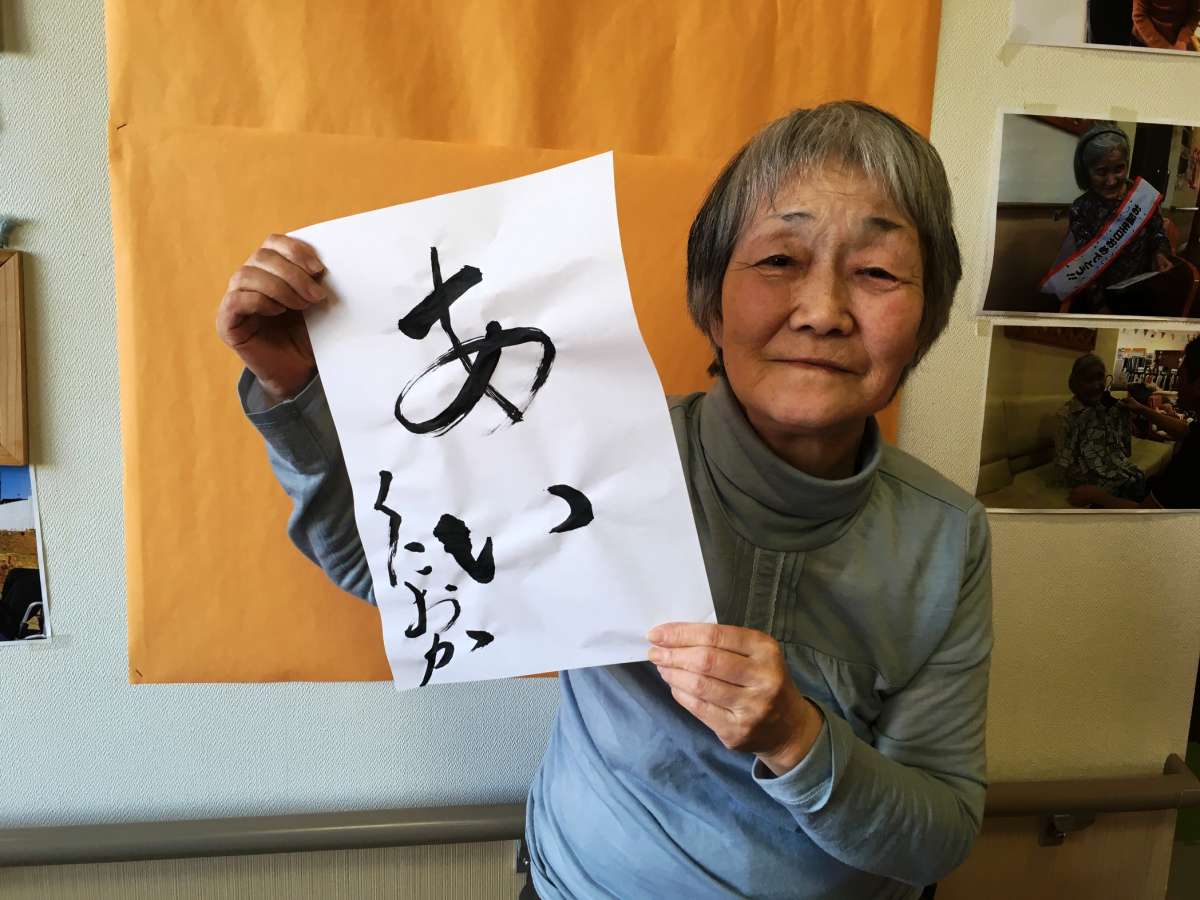 あい
くにおか